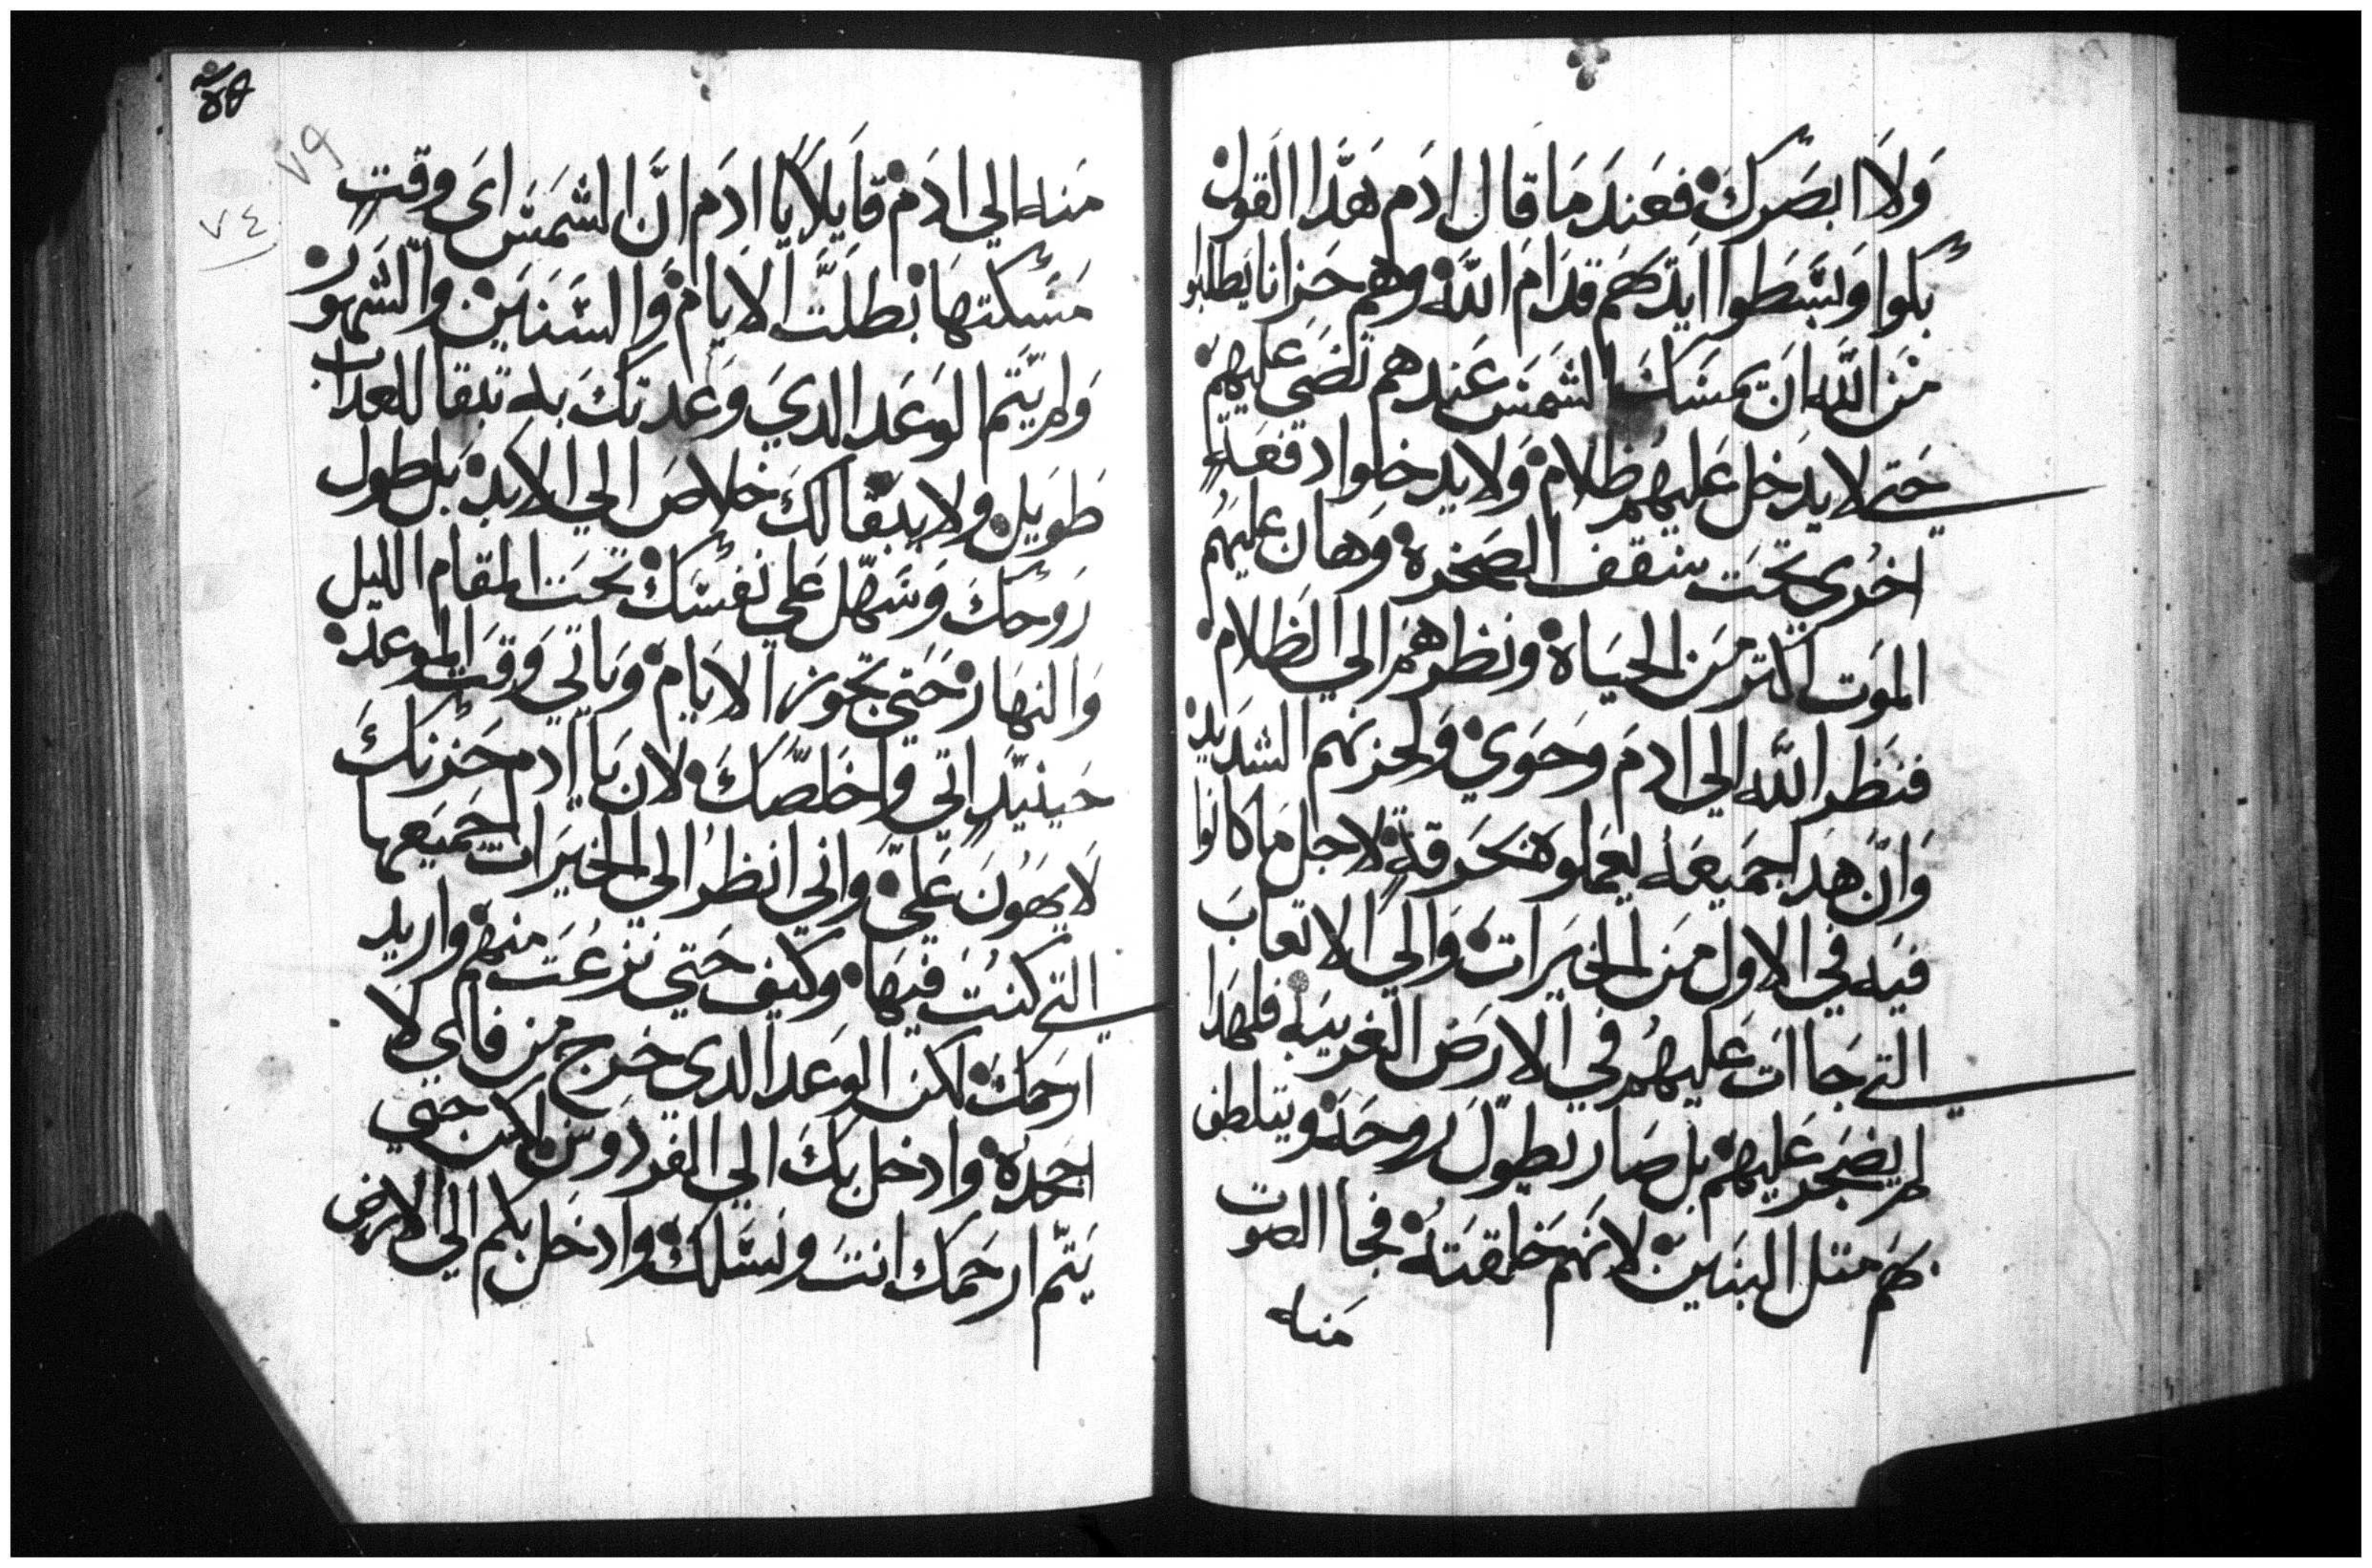 وَلَا ابصَرك فعَندَ مَا قال ادَم هَدَا القول
بكوا وَبسَطوا ايدَكهَم قدَام اللَّه وهم حَزانا يَطلبوا
مَن اللَّه ان يمسَك الشمَس عَندهم تضَي عَليهَم
حَتي لا يدَخل عَليهُم ظلام وَلا يدخلوا دفعَة
اخرُي تحَت سَقف الصَخره وَهان عليهُم
الموَت اكتر مَن الحيَاة ونظرهَم الي الظلام
فنظر اللَّه الي ادمَ وحَوي وَلحزنهم الشدَيد
وَانَّ هدَا جميَعَه يعمَلوه بحَرقة لاجل مَا كانوا
فيَه في الاول مَن الخيَرات وَالي الاتعابَ
التي جَاات عَليهُم في الارَض الغريبَه فلهَدا
لم يضَجر عَليهَم بل صَار يطوّل روحَه ويتلطف
بهَم متل البنَين لانهَم خلقتَه فجا الصَوت
مَنه
٧٩
٧٤
مَنه الي ادَم قايلًا يا ادَم انَّ الشمَسَ اي وقتٍ
مَسَكتهَا بَطلَت الايام وَالسَنَين والشَهوَر
وَلم يتَم الوَعَد الدي وَعَدتكَ به تبقا للعدَاب
طوَيل ولا يبقا لكَ خلاصَ الي الابد بَل طول
رَوحَكَ وَسَهّل عَلي نفسَك تحَت المقام الليل
وَالنهَار حَتي تجوز الايام وَياتي وَقت الموعد
حَينيَدٍ اتي وَاخَلصَكَ لان يَا ادم حَزنكَ
لَا يَهَوُنَ عَليَّ وَاني انظرُ الي الخيَرَات جميَعها
التي كنتَ فيهَا وكيف حَتي نزعُتَ منهم واريد
ارحَمَك لكن الوَعَد الدي خرج من فاي لا
اجحدَه وادخل بكَ الي الفردوس لاكن حَتي
يَتمّ ارحَمك انتَ ونسَلك وادخل بكم الي الارض